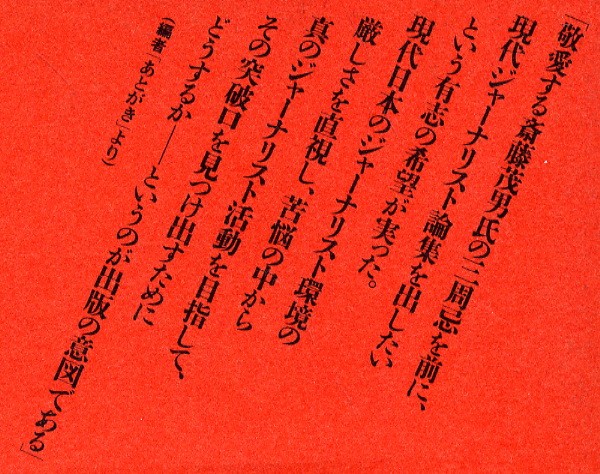 「敬愛する斎藤茂男氏の三周忌を前に、
現代ジャーナリスト論集を出したい
という有志の希望が実った。
現代日本のジャーナリスト環境の
厳しさを直視し、苦悩の中から
真のジャーナリスト活動を目指して、
その突破口を見つけ出すために
どうするか――というのが出版の意図である」
（編者「あとがき」より）